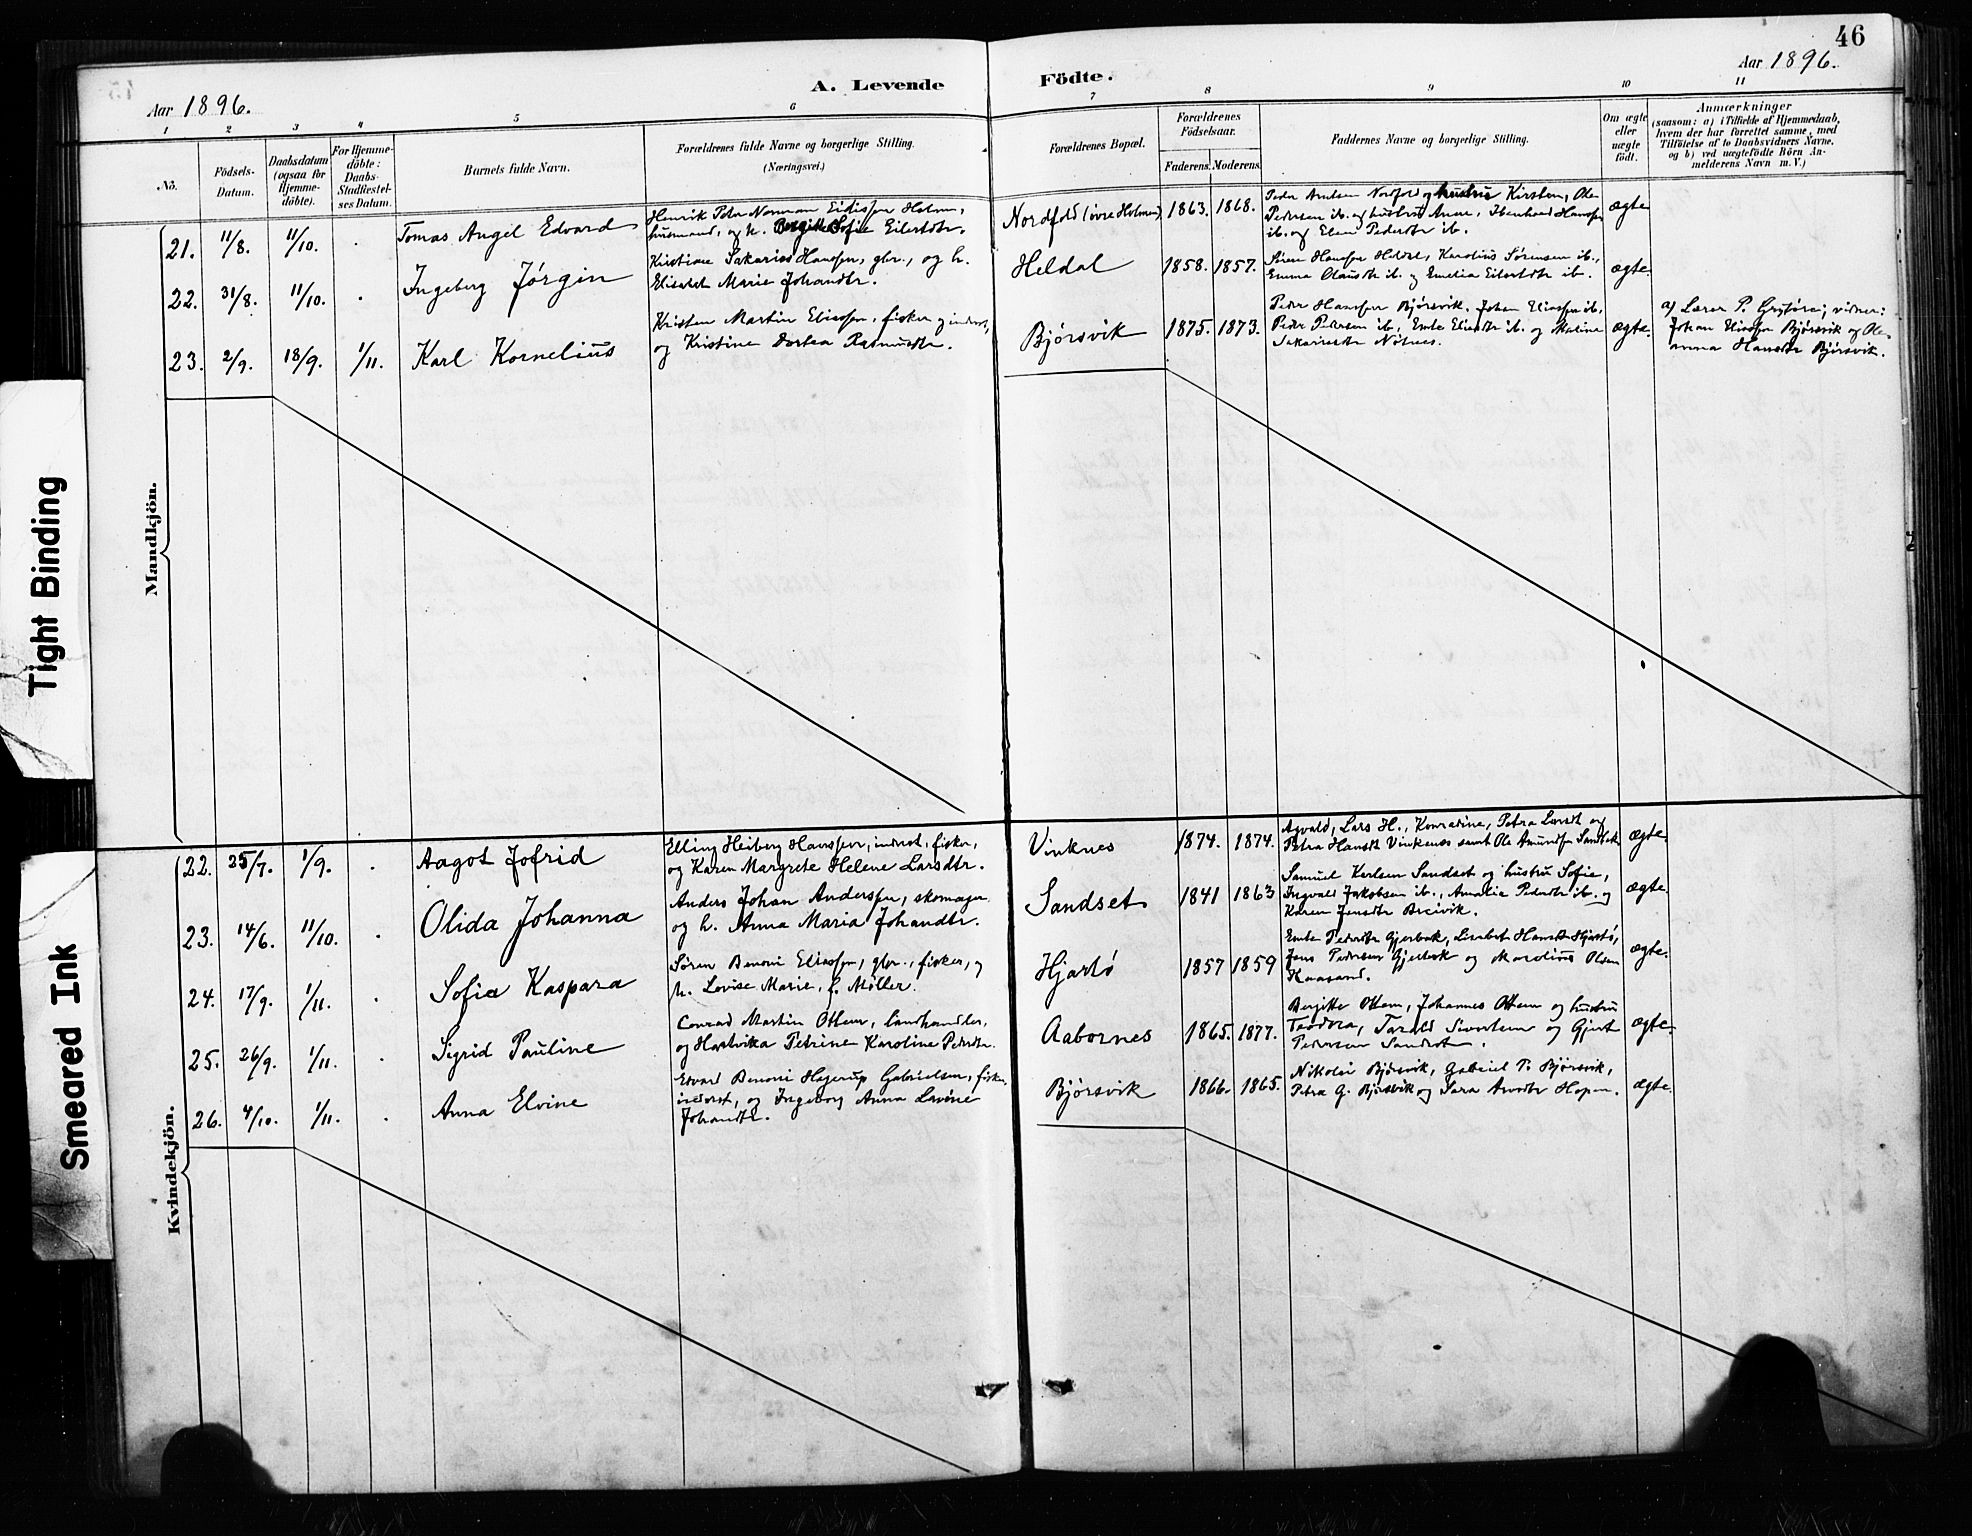 46
Aar 1896.
A. Levende
Födte.
Aar 1896.
1 2 3 4 5 6 7 8 9 10 11
No.
Födsels-Datum.
Daabsdatum (ogsaa for Hjemme-döbte).
For Hjemme-döbte: Daabs-Stadfæstel-ses Datum.
Barnets fulde Navn.
Forældrenes fulde Navne og borgerlige Stilling.
(Næringsvei.)
Forældrenes Bopæl.
Forældrenes Födselsaar.
Faderens. Moderens.
Faddernes Navne og borgerlige Stilling.
Om ægte eller uægte födt.
Anmærkninger
(saasom: a) i Tilfælde af Hjemmedaab, hvem der har forrettet samme, med Tilföielse af to Daabsvidners Navne, og b) ved uægtefödte Börn An-melderens Navn m. V.)
Mandkjön.
21. 11/8. 11/10. . Tomas Angel Edvard
Henrik Peder Norman Eidissen Holmen,
husmand, og h. Bergitte Sofie Eilertdtr.
Nordfold (øvre Holmen) 1863. 1868.
Peder Amdsen Nordfold og hustru Kirsten, Ole
Pedersen ib. og hustru Anne, Ibenhard Hanssen
ib. og Elen Pedersdtr ib.
ægte
22. 31/8. 11/10. . Ingeberg Jörgin
Kristian Sakarias Hanssen, gbr., og h.
Elisabet Marie Johandtr.
Heldal 1858. 1857.
Sören Hanssen Heldal, Karolius Sørensen ib.,
Emma Olausdtr ib. og Emelia Eilertdtr ib.
ægte.
23. 2/9. 18/9. 1/11. Karl Kornelius
Kristen Martin Eliassen, fisker og inderst,
og Kristine Dortea Rasmusdtr.
Bjørsvik 1875. 1873.
Peder Hanssen Bjørsvik, Johan Eliassen ib.,
Peder Pedersen ib., Emte Eliasdtr ib. og Maline
Sakariasdtr Nötnes.
ægte.
a) Lærer P. Grytöre; vidner:
Johan Eliassen Bjørsvik og Ole-
anna Hansdtr Bjørsvik.
Kvindekjön.
22. 25/7. 1/9. . Aagot Jofrid
Elling Heiberg Hanssen, inderst, fisker,
og Karen Margrete Helene Larsdtr.
Vinknes 1874. 1874.
Agvald, Lars H., Konradine, Petra Larsdt og
Petra Hansdt Vinkenes samt Ole Amundsen Sandbak
ægte.
23. 14/6. 11/10. . Olida Johanna
Anders Johan Anderssen, skomager
og h. Anna Maria Johandtr.
Sandset 1841 1863
Samuel Karlsen Sandset og hustru Sofie,
Ingvald Jakobsen ib., Amalie Pedersdtr ib. og
Karen Jensdtr Breivik.
ægte.
24. 17/9. 1/11. . Sofia Kaspara
Søren Benoni Eliassen, gbr., fisker, og
h. Lovise Marie, f. Møller.
Hjartö 1857 1859
Emte Pedersdtr Gjerbak, Lisabet Hansdt Hjartö,
Jens Pedersen Gjerbak og Marolius Olsen
Haasand.
ægte.
25. 26/9. 1/11. . Sigrid Pauline
Conrad Martin Ottem, landhandler,
og Hartvikka Petrine Karoline Pedersdtr.
Aabornes 1865. 1877.
Bergitte Ottem, Johannes Ottem og hustru
Teodora, Tarald Sivertsen og Gjert
Pedersen Sandset.
ægte.
26. 4/10. 1/11. . Anna Elvine
Edvard Benoni Hagerup Gabrielsen, fisker,
inderst, og Ingeborg Anna Lavine
Johandtr.
Bjørsvik 1866. 1865.
Nikolai Bjørsvik, Gabriel P. Bjørsvik,
Petra G. Bjørsvik og Sara Arntdtr Hopen.
ægte.
Tight Binding
Smeared Ink